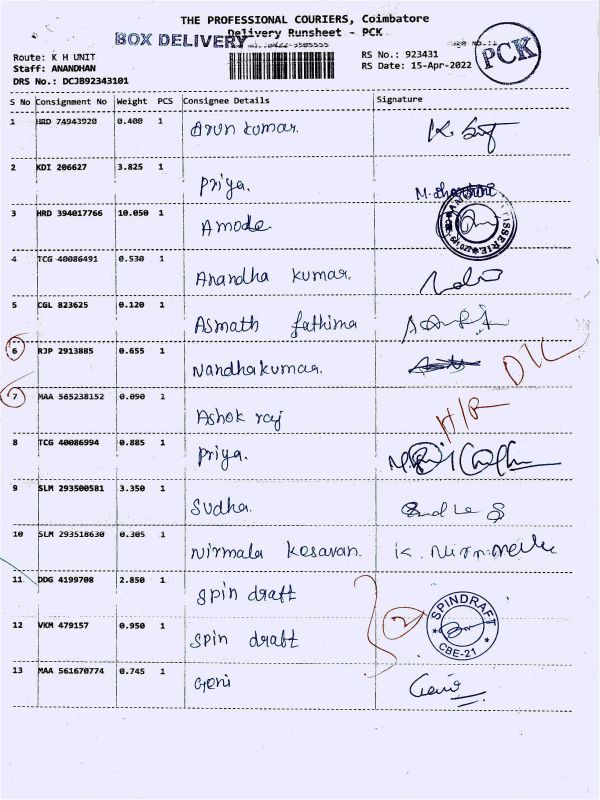 THE PROFESSIONAL COURIERS, Coimbatore
BOX DELIVERY
Delivery Runsheet - PCK
PCK
Route: K H UNIT
Staff: ANANDHAN
DRS No.: DCJB92343101
RS No.: 923431
RS Date: 15-Apr-2022
S No Consignment No Weight PCS Consignee Details Signature
1 HRD 74943920 0.400 1 Arun kumar.
2 KDI 206627 3.825 1 Priya.
3 HRD 394017766 10.050 1 Amode
4 TCG 40086491 0.530 1 Anandha kumar.
5 CGL 823625 0.120 1 Asmath fathima
6 RJP 2913885 0.655 1 Nandhakumar. D/L
7 MAA 565238152 0.090 1 Ashok raj H/R
8 TCG 40086994 0.885 1 Priya.
9 SLM 293500581 3.350 1 Sudha.
10 SLM 293518630 0.305 1 Nirmala kesavan.
11 DDG 4199708 2.850 1 Spin draft
2
SPINDRAFT
CBE-21
12 VKM 479157 0.950 1 Spin draft
13 MAA 561670774 0.745 1 Geni